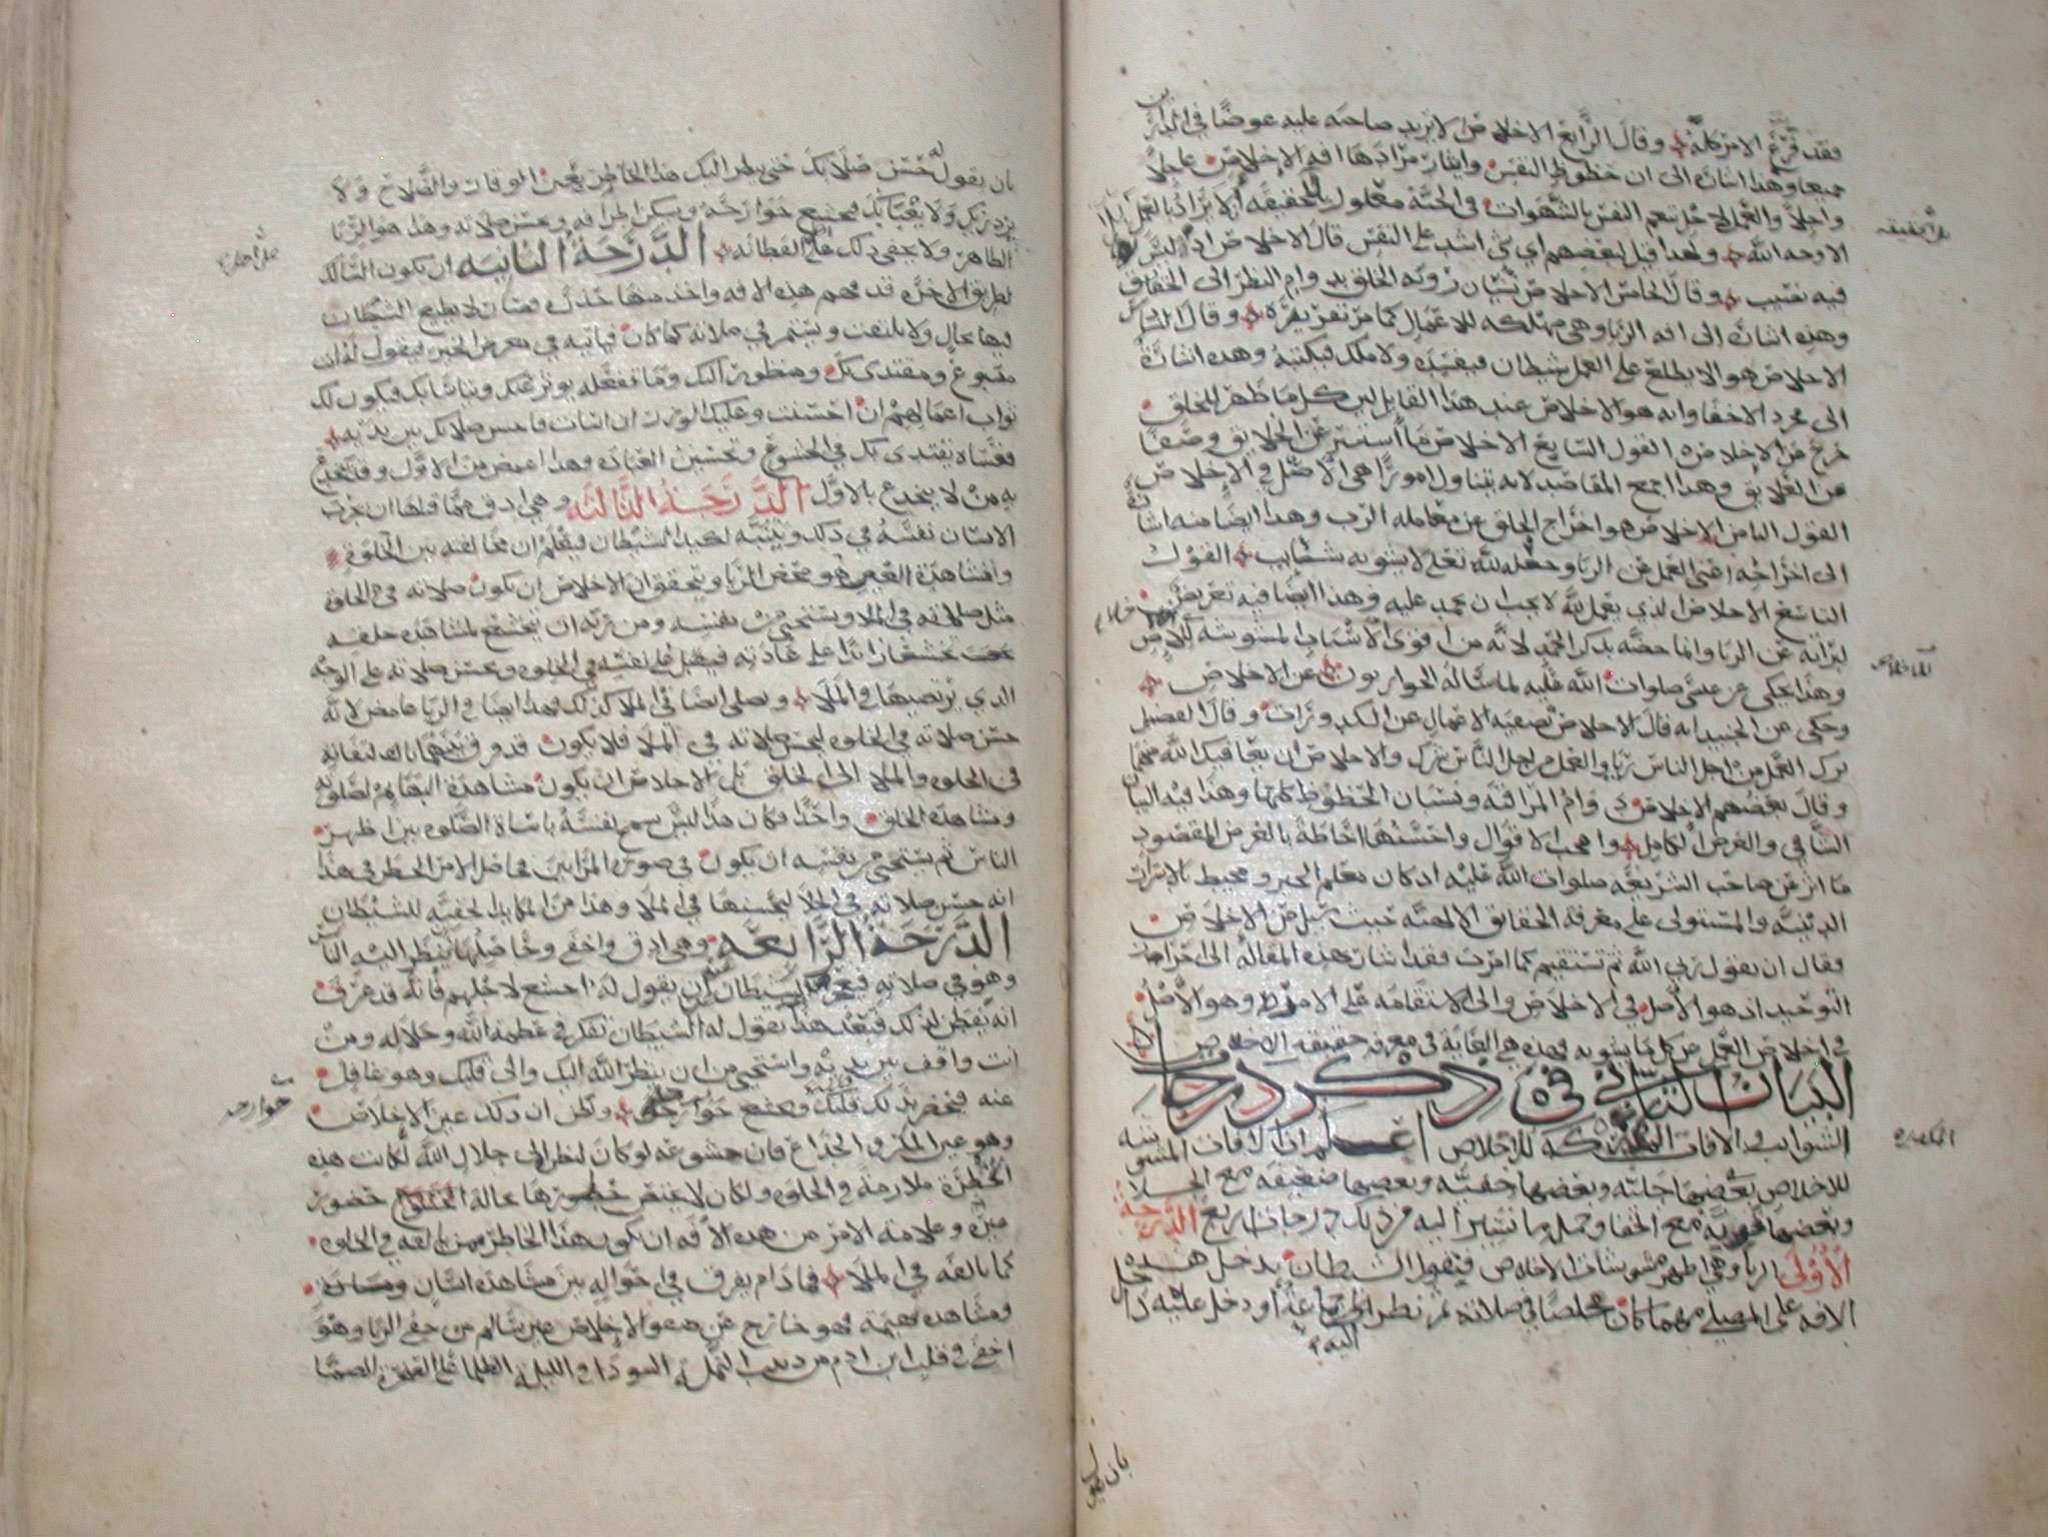 فقد فرغ الامر كله وقال الرابع الاخلاص ان لا يريد صاحبه عليه عوضا في الدارين
جميعا وهذا اشاره الى ان حظوظ النفس وايثار مرادها افه الاخلاص عاجلا
واجلا والعمل لاجل تنعم النفس بالشهوات في الجنة معلول بل الحقيقه ان لا يراد بالعمل
الا وجه الله ولهذا قيل لبعضهم اي شي اشد على النفس قال الاخلاص اذ ليس
فيه نصيب وقال الخامس الاخلاص نسيان رويه الخلق بدوام النظر الى الخالق
وهذه اشاره الى افه الريا وهي مهلكه للاعمال كما مر تقريره وقال السادس
الاخلاص هو الا يطلع على العمل شيطان فيفسده ولا ملك فيكتبه وهذه اشارة
الى مجرد الاخفا وانه هو الاخلاص عند هذا القايل لان كل ما ظهر للخلق
خرج عن الاخلاص القول السابع الاخلاص ما استتر عن الخلايق وصفا
عن العلايق وهذا اجمع المقاصد لانه يتناول امورا هي الاصل في الاخلاص
القول الثامن الاخلاص هو اخراج الخلق عن معامله الرب وهذا ايضا منه اشارة
الى اخراجه اعني العمل عن الريا وجعله لله تعالى لا يشوبه شايب القول
التاسع الاخلاص الذي يعمل لله لا يحب ان يحمد عليه وهذا ايضا فيه تعريض
لبرائه عن الريا وانما خصه بذكر الحمد لانه من اقوى الاسباب المشوشه للاخلاص
وهذا يحكى عن عيسى صلوات الله عليه لما سأله الحواريون عن الاخلاص
وحكى عن الجنيد انه قال الاخلاص تصفيه الاعمال عن الكدورات وقال الفضيل
ترك العمل من اجل الناس ريا والعمل من اجل الناس شرك والاخلاص ان يعافيك الله منهما
وقال بعضهم الاخلاص دوام المراقبه ونسيان الحظوظ كلها وهذا فيه البيان
الشافي والغرض الكامل واعجب الاقوال واحسنها احاطة بالغرض المقصود
ما اثر عن صاحب الشريعه صلوات الله عليه اذ كان معلم الخير ومحيط بالاسرار
الدينيه والمستولى على معرفة الحقايق الالهيه حيث سيل عن الاخلاص
فقال ان يقول ربي الله ثم تستقيم كما امرت فقد اشار بهذه المقالة الى
التوحيد اذ هو الاصل في الاخلاص والى الاستقامه على الامر وهو الاصل
في اخلاص العمل عن كل ما يشوبه فهذه هي الغاية في معرفه حقيقه الاخلاص
البيان الثاني في ذكر درجات
الشوايب والافات المكدره للاخلاص اعلم ان الافات المشوشه
للاخلاص بعضها جليه وبعضها خفيه وبعضها ضعيفه مع الجلا
وبعضها قويه مع الخفا وجملة ما نشير اليه من ذلك درجات اربع الدرجة
الاولى الريا وهي اظهر مشوشات الاخلاص فيقول الشيطان يدخل هذه
الافه على المصلي مهما كان مخلصا في صلاته ثم نظر اليه جماعة او دخل عليه داخل
بان يقول
بان يقول له حسن صلاتك حتى ينظر اليك هذا الحاضر بعين الوقار والصلاح ولا
يزدريك ولا يغتابك فيخشع جوارحه ويسكن اطرافه ويحسن صلاته وهذا هو الريا
الظاهر ولا يخفى ذلك على الفطانه الدرجة الثانيه ان يكون السالك
لطريق الاخره قد فهم هذه الافه واخذ منها حذره فصار لا يطيع الشيطان
فيها بحال ولا يلتفت ويستمر في صلاته كما كان فياتيه في معرض الخير فيقول له انت
متبوع ومقتدى بك ومنظور اليك وما تفعله يوثر عنك ويتاسا بك فيكون لك
ثواب اعمالهم ان احسنت وعليك الوزر ان اسات فاحسن صلاتك بين يديه
فعساه يقتدى بك في الخشوع وتحسين العباده وهذا اغمض من الاول وقد ينخدع
به من لا ينخدع بالاول الدرجة الثالثه وهي ادق مما قبلها ان يجرب
الانسان نفسه في ذلك ويتنبه لكيد الشيطان فيعلم ان مخالفته بين الخلوة
ومشاهدة الغير هو محض الريا ويتحقق ان الاخلاص ان يكون صلاته في الخلوه
مثل صلاته في الملا ويستحيي من نفسه ومن ربه ان يتخشع لمشاهده خلقه
تخشعا زائدا على عادته فيقبل على نفسه في الخلوه ويحسن صلاته على الوجه
الذي يرتضيها في الملا ويصلي ايضا في الملا كذلك فهذا ايضا في الريا غامض لانه
حسن صلاته في الخلوه ليحسن صلاته في الملا فلا يكون قد فرق بينهما فالتفاته
في الخلوه والملا الى الخلق بل الاخلاص ان يكون مشاهدة البهايم لصلوته
ومشاهدة الخلق واحدا فكان هذا ليس يسمح نفسه باساة الصلوه بين اظهر
الناس ثم يستحيي من نفسه ان يكون في صورة المرايين فحاصل الامر الخطر في هذا
انه حسن صلاته في الخلا ليحسنها في الملا وهذا من المكايد الخفيه للشيطان
الدرجة الرابعه وهي ادق واخفى وحاصلها ينظر اليه الناس
وهو في صلاته فيعجز الشيطان عن ان يقول له اخشع لاجلهم فانه قد عرف
انه تفطن لذلك فبعد هذا يقول له الشيطان تفكر في عظمة الله وجلاله ومن
انت واقف بين يديه واستحيي من ان ينظر الله اليك والى قلبك وهو غافل
عنه فيحضر بذلك قلبه ويخشع جوارحه ويظن ان ذلك عين الاخلاص
وهو عين المكر والخداع فان خشوعه لو كان لنظره الى جلال الله لكانت هذه
الخطرة ملازمة في الخلوه ولكان لا يختص حضورها حالة حضور
غيره وعلامة الامن من هذه الافه ان يكون هذا الخاطر ممن يالفه في الخلوه
كما يالفه في الملا فما دام يفرق في احواله بين مشاهدة انسان
ومشاهدة بهيمه فهو خارج عن صفو الاخلاص غير سالم من خفي الريا وهو
اخفى في قلب ابن ادم من دبيب النملة السودا في الليلة الظلما على الصخرة الصما
جوارحه